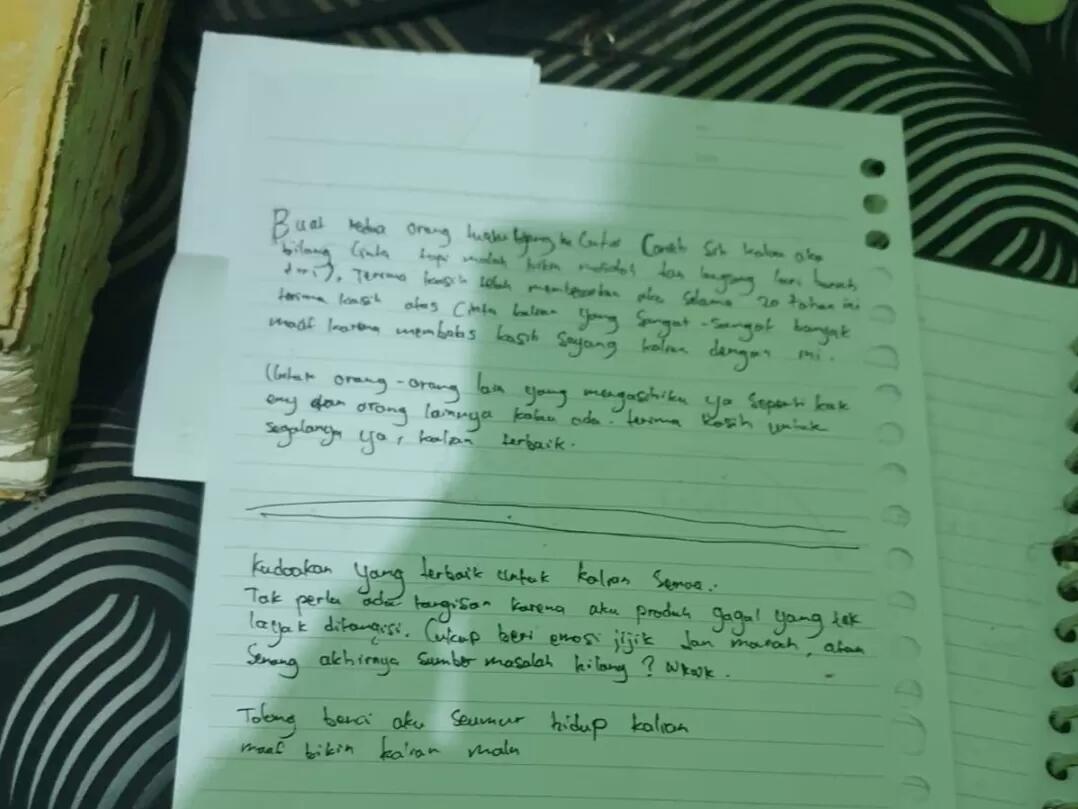 Buat kedua orang tuaku Cantik sih kalau aku
bilang Cinta tapi malah bikin masalah dan langsung lari bunuh
diri), Terima kasih telah membesarkan aku selama 20 tahun ini
terima kasih atas Cinta kalian yang sangat-sangat banyak
maaf karena membalas kasih sayang kalian dengan ini.
Untuk orang-orang lain yang mengasihiku ya seperti kak
emy dan orang lainnya kalau ada. terima kasih untuk
segalanya ya, kalian terbaik.
Kudoakan yang terbaik untuk kalian Semua.
Tak perlu ada tangisan karena aku produk gagal yang tak
layak ditangisi. Cukup beri emosi jijik dan marah, atau
Senang akhirnya sumber masalah hilang? Wkwk.
Tolong benci aku seumur hidup kalian
maaf bikin kalian malu